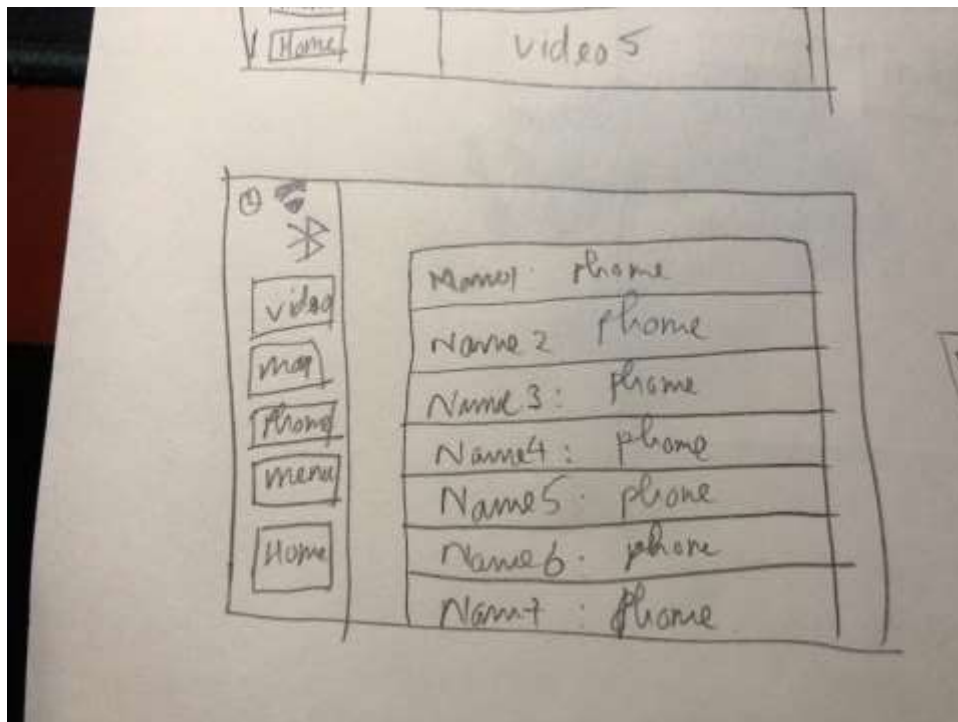 Home
video 5
video
map
Phone
menu
Home
Name1: phone
Name 2 phone
Name 3: phone
Name4: phone
Name5: phone
Name6: phone
Nam7: phone